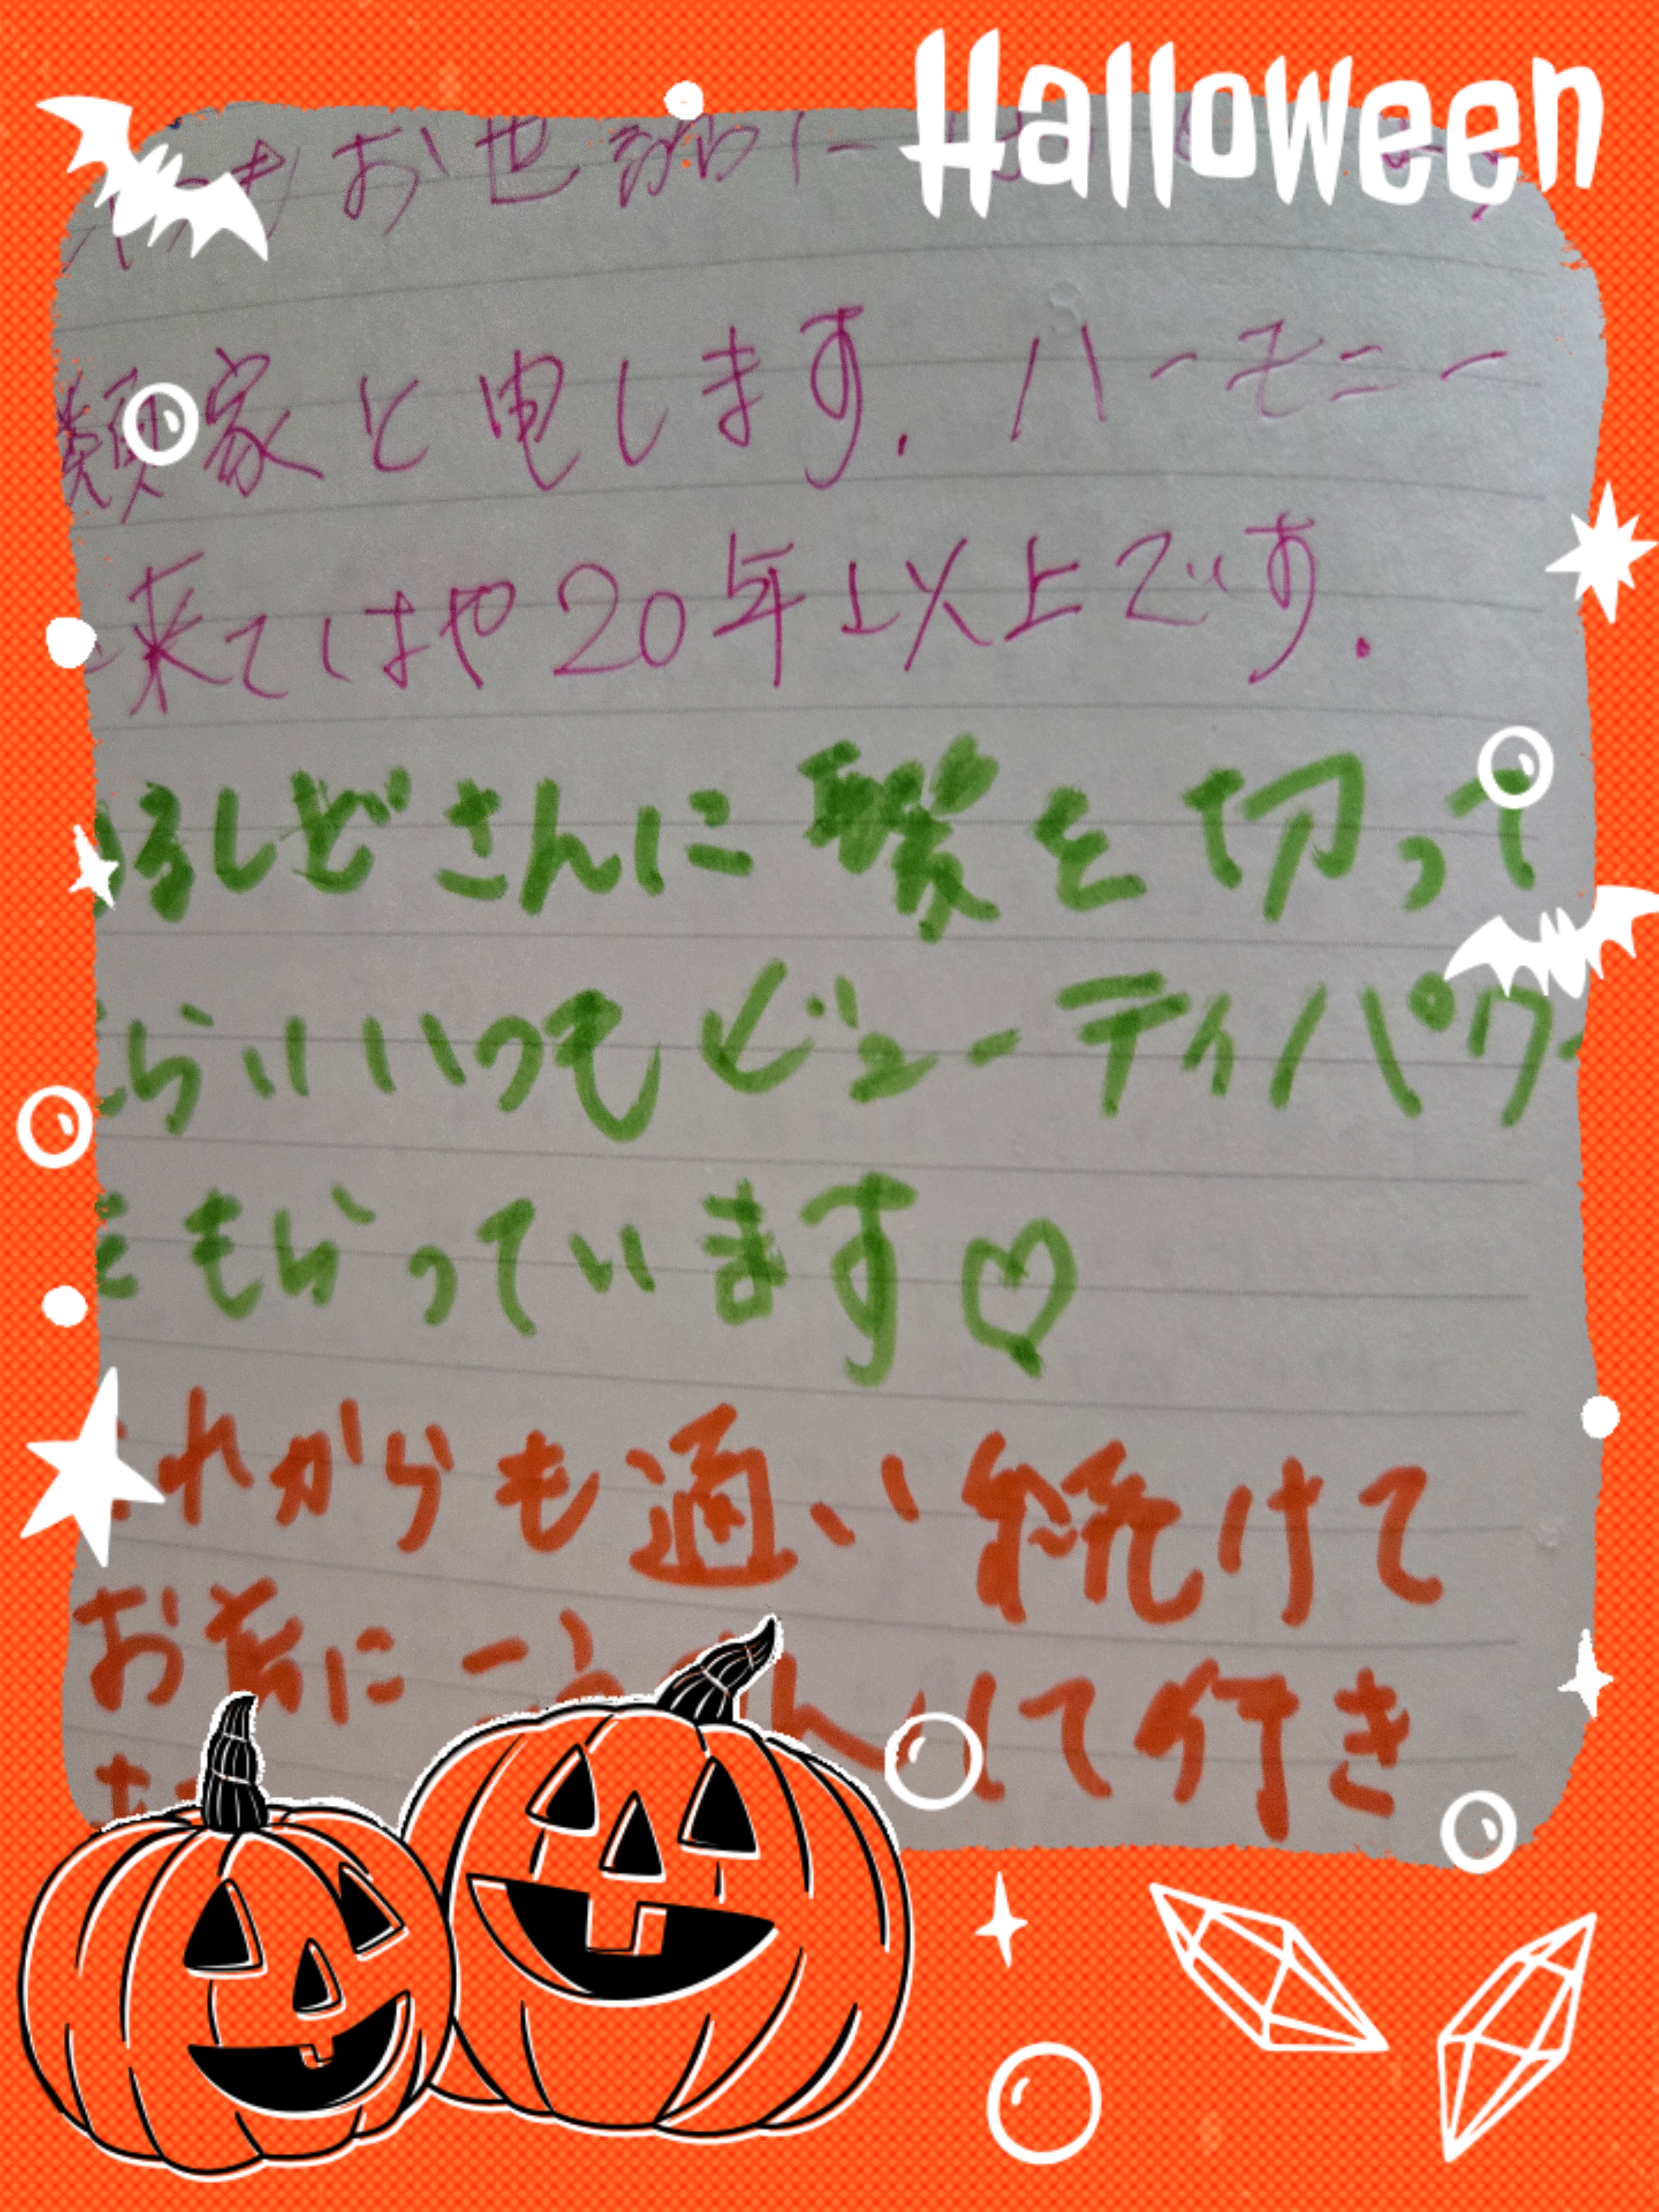 Halloween
お世話に
類家と申します.ハーモニー
来てはや20年以上です.
るしどさんに髪を切って
らいいつもビューティパワー
をもらっています♡
これからも通い続けて
お若に して行き